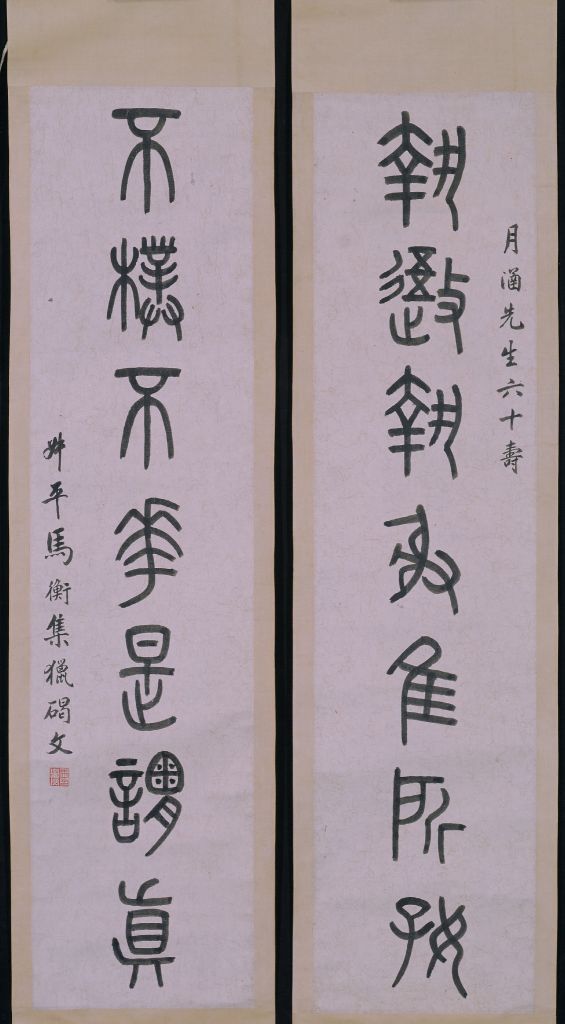 月涵先生六十壽
執御執射隹所好
不樸不華是謂真
叔平馬衡集獵碣文